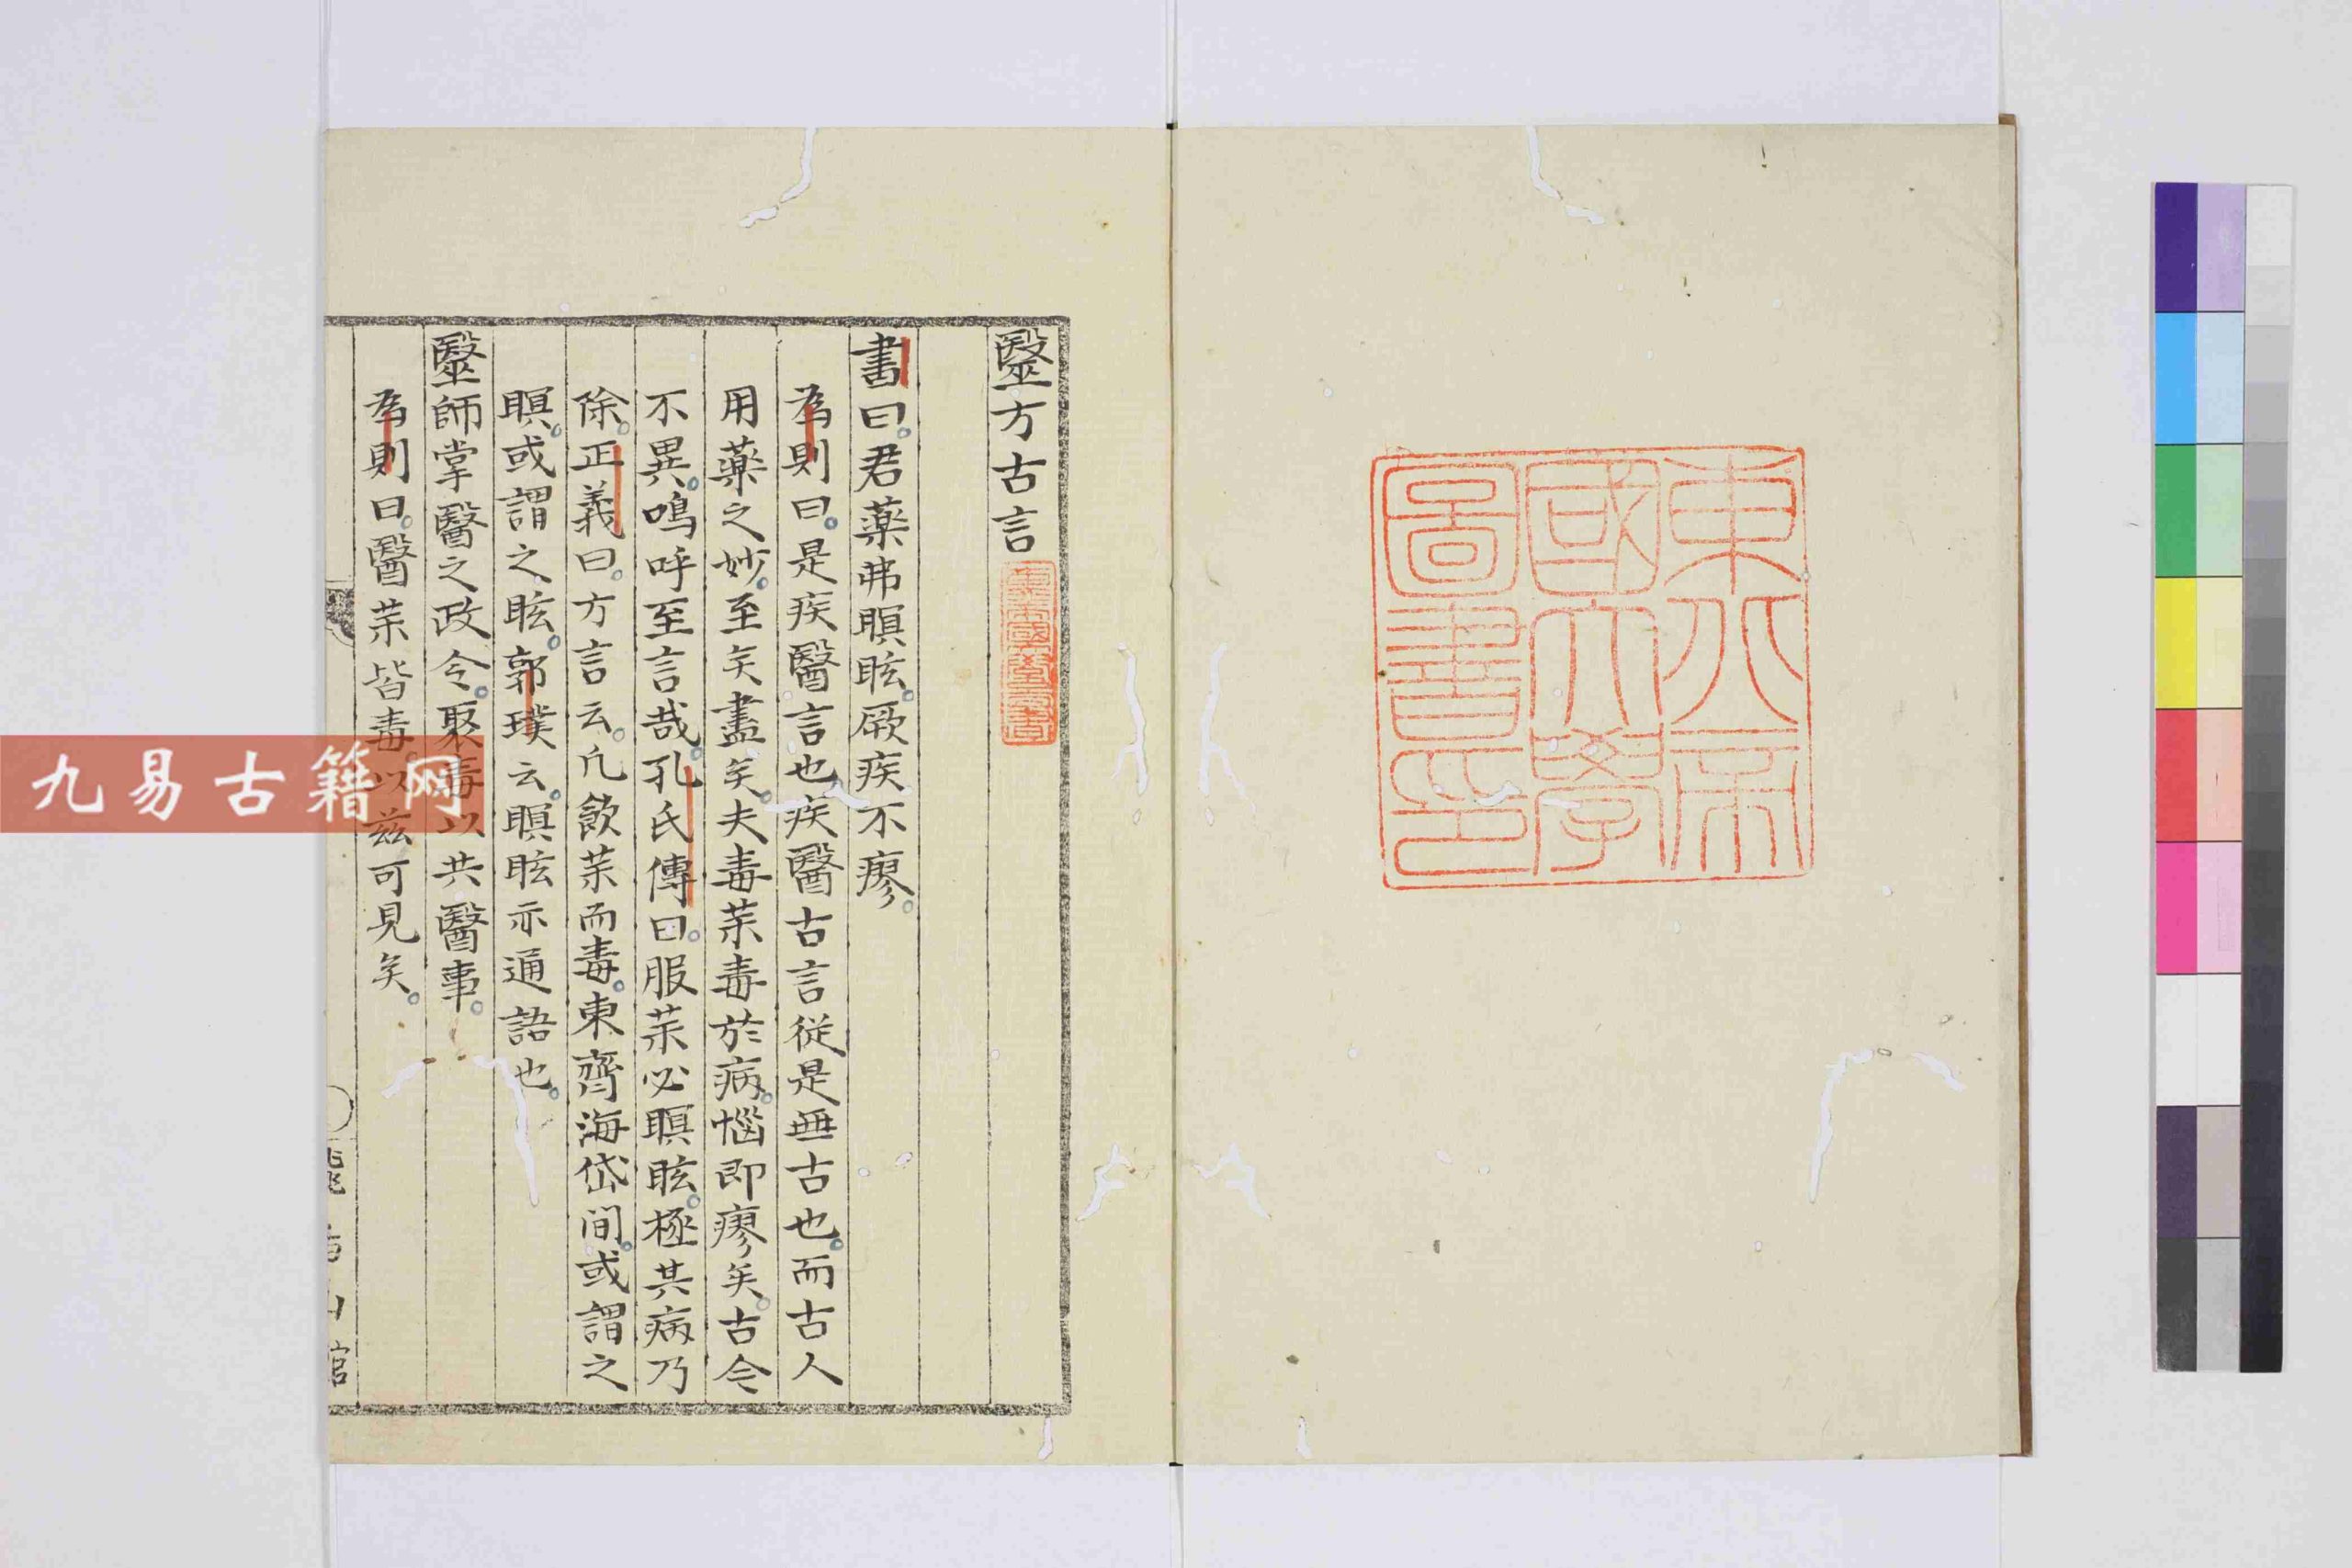 東北帝
國大學
圖書印
毉方古言
書曰。君藥弗瞑眩。厥疾不瘳。
為則曰。是疾醫言也。疾醫古言從是無古也。而古人
用藥之妙。至矣盡矣。夫毒茮毒於病。惱即瘳矣。古今
不異。嗚呼至言哉。孔氏傳曰。服茮必瞑眩。極其病乃
除。正義曰。方言云。凢飲茮而毒。東齊海岱間。或謂之
瞑。或謂之眩。郭璞云。瞑眩亦通語也。
毉師掌醫之政令。聚毒以共醫事。
為則曰。醫茮皆毒。以兹可見矣。
館
九易古籍网